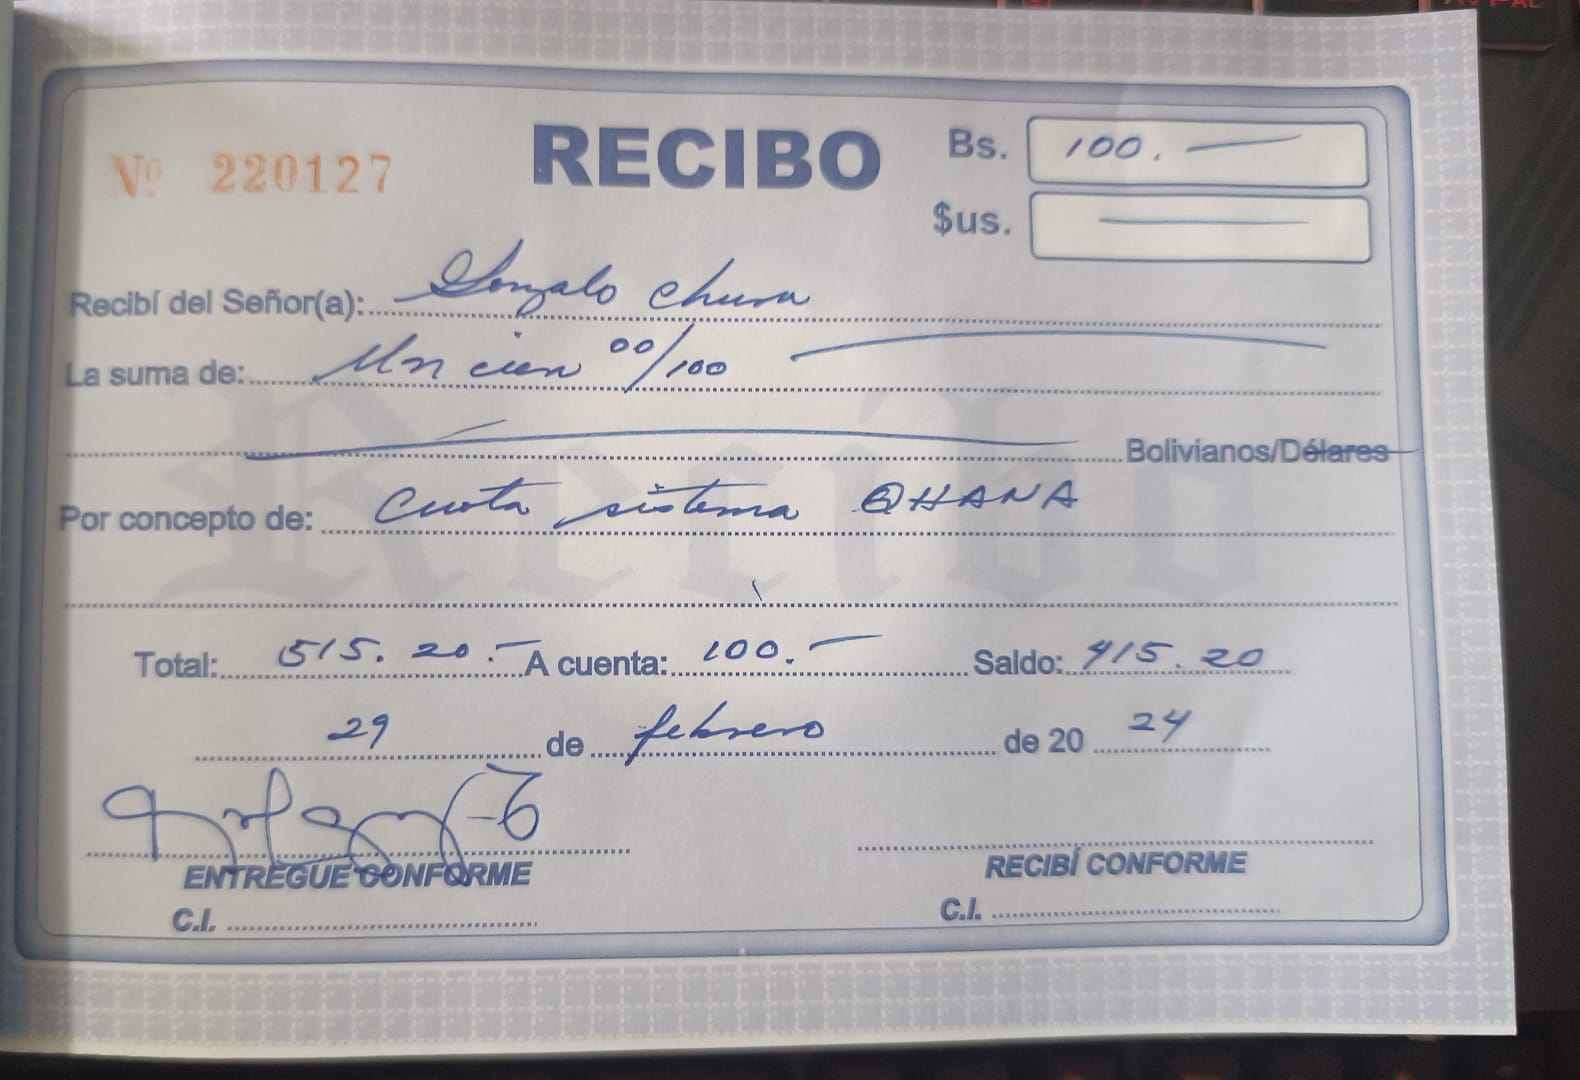 Nº 220127
RECIBO
Bs. 100.
$us.
Recibí del Señor(a): Gonzalo Chura
La suma de: Un cien 00/100
Bolivianos/Dólares
Por concepto de: Cuota sistema QHANA
Total: 515.20.- A cuenta: 100.- Saldo: 415.20
29 de febrero de 20 24
ENTREGUE CONFORME
RECIBÍ CONFORME
C.I.
C.I.
Recibo